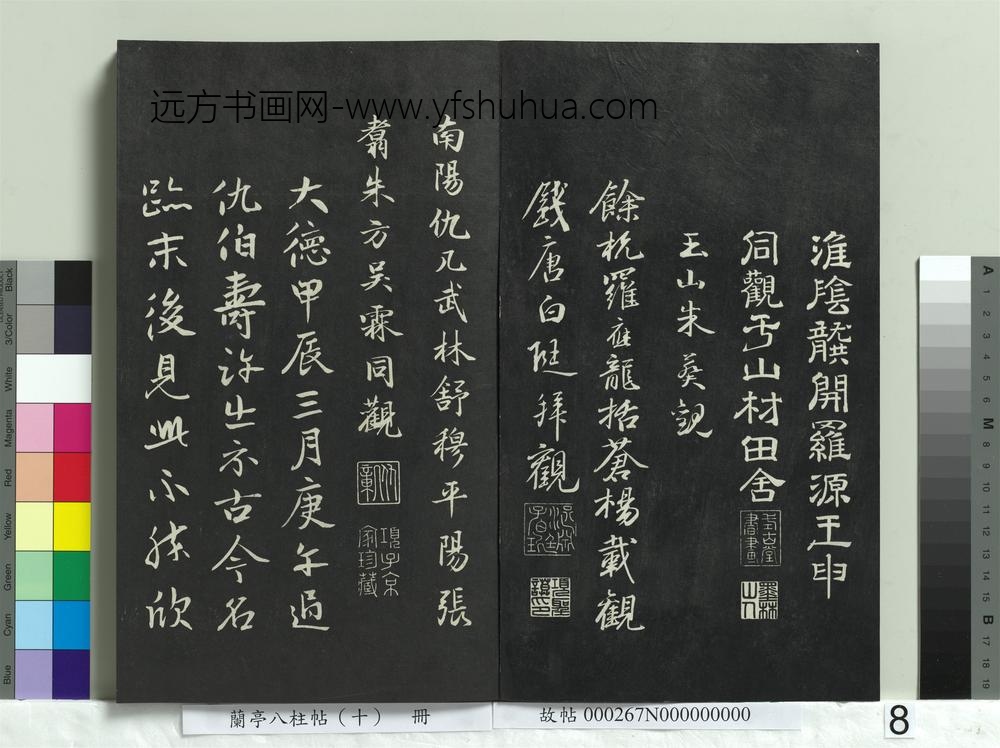 远方书画网-www.yfshuhua.com
淮陰龔開羅源王申
同觀于山材田舍
玉山朱葵觀
餘杭羅應龍括蒼楊載觀
錢唐白珽拜觀
南陽仇几武林舒穆平陽張
翥朱方吴霖同觀
大德甲辰三月庚午過
仇伯壽許出示古今名
跡末後見此不勝欣
項子京家珍藏
墨林山人
蘭亭八柱帖（十） 冊
故帖 000267N000000000
8
Black
3/Color
White
Magenta
Red
Yellow
Green
Cyan
Blue
A
1
2
3
4
5
6
M
8
9
10
11
12
13
14
15
B
17
18
19